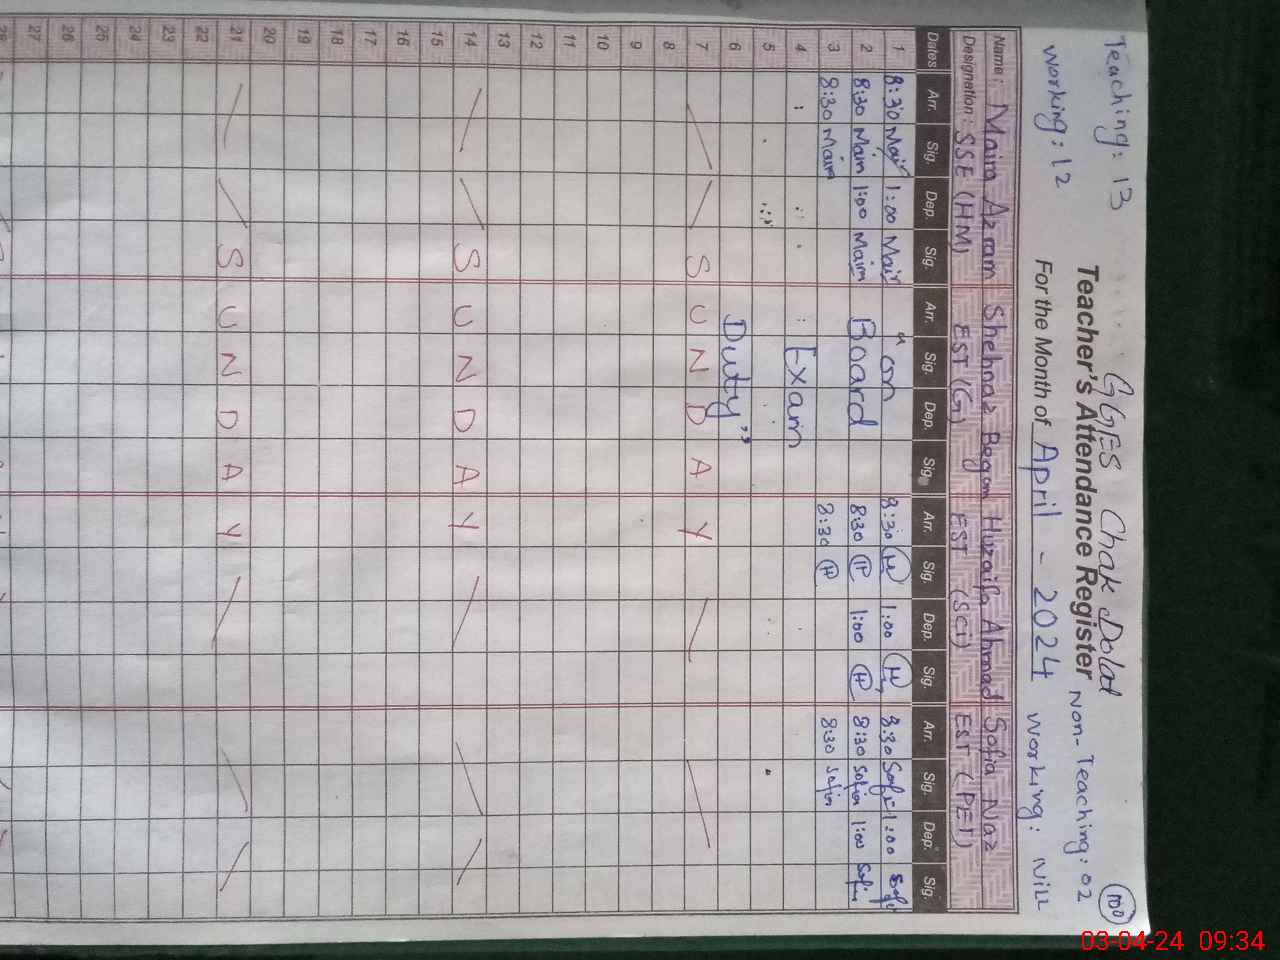 GGES Chak Dolat
100
Teaching: 13
Teacher's Attendance Register
Non-Teaching: 02
Working: 12
For the Month of April - 2024
Working: Nill
Name: Maira Azram Shehnaz Begam Huzaifa Ahmad Sofia Naz
Designation: SSE (HM) EST (G) EST (Sci) EST (PET)
Dates Arr. Sig. Dep. Sig. Arr. Sig. Dep. Sig. Arr. Sig. Dep. Sig. Arr. Sig. Dep. Sig.
1 8:30 Mair 1:00 Mair " on 8:30 H 1:00 H 8:30 Sofi 1:00 Sofi
2 8:30 Maira 1:00 Maira Board 8:30 H 1:00 H 8:30 Sofia 1:00 Sofia
3 8:30 Maira 8:30 H 8:30 Sofia
4 Exam
5
6 Duty "
7 SUNDAY
8
9
10
11
12
13
14 SUNDAY
15
16
17
18
19
20
21 SUNDAY
22
23
24
25
26
27
28
03-04-24 09:34